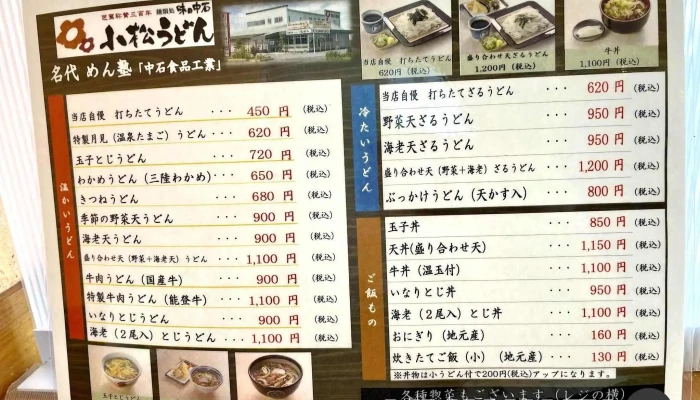 芭蕉称賛三百年 麺類処 味の中石
小松うどん
名代 めん塾「中石食品工業」
当店自慢 打ちたてざるうどん
620円 (税込)
盛り合わせ天ざるうどん
1,200円 (税込)
牛丼
1,100円 (税込)
温かいうどん
当店自慢 打ちたてうどん ・・・ 450 円 (税込)
特製月見 (温泉たまご) うどん ・・・ 620 円 (税込)
玉子とじうどん ・・・ 720 円 (税込)
わかめうどん (三陸わかめ) ・・・ 650 円 (税込)
きつねうどん ・・・ 680 円 (税込)
季節の野菜天うどん ・・・ 900 円 (税込)
海老天うどん ・・・ 900 円 (税込)
盛り合わせ天 (野菜+海老) うどん ・・・ 1,100 円 (税込)
牛肉うどん (国産牛) ・・・ 900 円 (税込)
特製牛肉うどん (能登牛) ・・・ 1,100 円 (税込)
いなりとじうどん ・・・ 900 円 (税込)
海老 (2尾入) とじうどん ・・・ 1,100 円 (税込)
玉子とじうどん
冷たいうどん
当店自慢 打ちたてざるうどん ・・・ 620 円 (税込)
野菜天ざるうどん ・・・ 950 円 (税込)
海老天ざるうどん ・・・ 950 円 (税込)
盛り合わせ天 (野菜+海老) ざるうどん ・・・ 1,200 円 (税込)
ぶっかけうどん (天かす入) ・・・ 800 円 (税込)
ご飯もの
玉子丼 ・・・ 850 円 (税込)
天丼(盛り合わせ天) ・・・ 1,150 円 (税込)
牛丼 (温玉付) ・・・ 1,100 円 (税込)
いなりとじ丼 ・・・ 950 円 (税込)
海老 (2尾入) とじ丼 ・・・ 1,100 円 (税込)
おにぎり (地元産) ・・・ 160 円 (税込)
炊きたてご飯 (小) (地元産) ・・・ 130 円 (税込)
※丼物は小うどん付で200円(税込)アップになります。
各種惣菜もございます (レジの横)